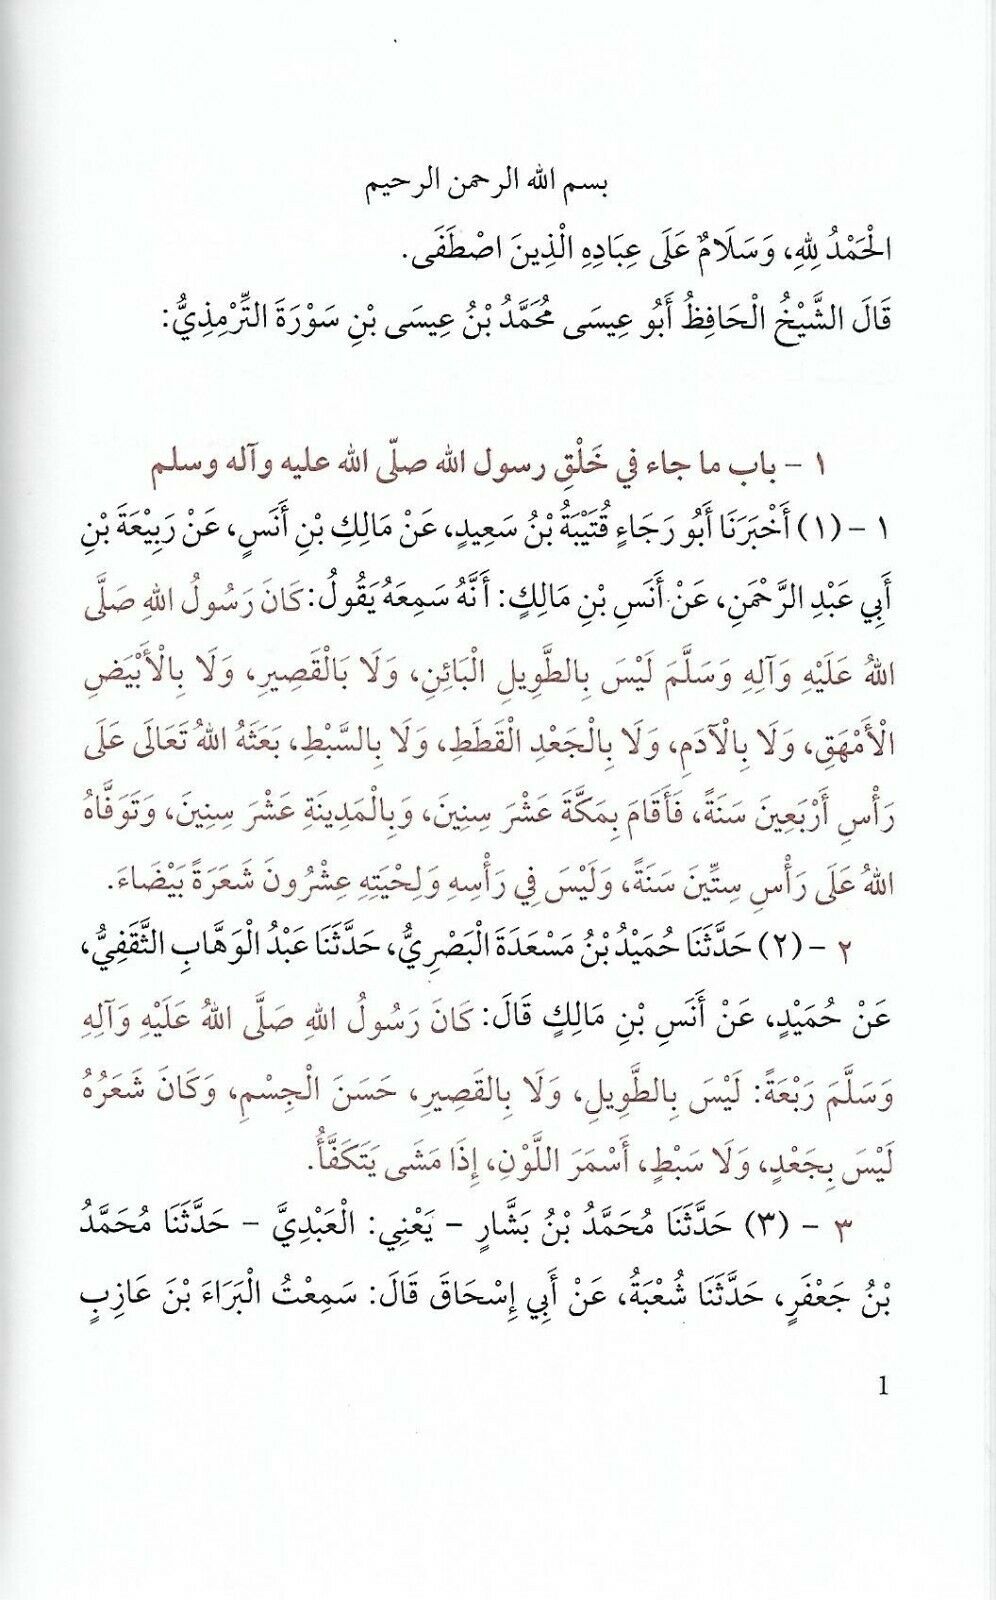 بسم الله الرحمن الرحيم
الْحَمْدُ لِلهِ، وَسَلَامٌ عَلَى عِبَادِهِ الَّذِينَ اصْطَفَى.
قَالَ الشَّيْخُ الْحَافِظُ أَبُو عِيسَى مُحَمَّدُ بْنُ عِيسَى بْنِ سَوْرَةَ التِّرْمِذِيُّ:
١ – باب ما جاء في خَلْقِ رسول الله صلّى الله عليه وآله وسلم
١ – (١) أَخْبَرَنَا أَبُو رَجَاءٍ قُتَيْبَةُ بْنُ سَعِيدٍ، عَنْ مَالِكِ بْنِ أَنَسٍ، عَنْ رَبِيْعَةَ بْنِ
أَبِي عَبْدِ الرَّحْمَنِ، عَنْ أَنَسِ بْنِ مَالِكٍ: أَنَّهُ سَمِعَهُ يَقُولُ: كَانَ رَسُولُ اللهِ صَلَّى
اللهُ عَلَيْهِ وَآلِهِ وَسَلَّمَ لَيْسَ بِالطَّوِيلِ الْبَائِنِ، وَلَا بَالْقَصِيرِ، وَلَا بِالْأَبْيَضِ
الْأَمْهَقِ، وَلَا بِالْآدَمِ، وَلَا بِالْجَعْدِ الْقَطَطِ، وَلَا بِالسَّبْطِ، بَعَثَهُ اللهُ تَعَالَى عَلَى
رَأْسِ أَرْبَعِينَ سَنَةً، فَأَقَامَ بِمَكَّةَ عَشْرَ سِنِينَ، وَبِالْمَدِينَةِ عَشْرَ سِنِينَ، وَتَوَفَّاهُ
اللهُ عَلَى رَأْسِ سِتِّينَ سَنَةً، وَلَيْسَ فِي رَأْسِهِ وَلِحْيَتِهِ عِشْرُونَ شَعَرَةً بَيْضَاءَ.
٢ – (٢) حَدَّثَنَا حُمَيْدُ بْنُ مَسْعَدَةَ الْبَصْرِيُّ، حَدَّثَنَا عَبْدُ الْوَهَّابِ الثَّقَفِيُّ،
عَنْ حُمَيْدٍ، عَنْ أَنَسِ بْنِ مَالِكٍ قَالَ: كَانَ رَسُولُ اللهِ صَلَّى اللهُ عَلَيْهِ وَآلِهِ
وَسَلَّمَ رَبْعَةً: لَيْسَ بِالطَّوِيلِ، وَلَا بِالقَصِيرِ، حَسَنَ الْجِسْمِ، وَكَانَ شَعَرُهُ
لَيْسَ بِجَعْدٍ، وَلَا سَبْطٍ، أَسْمَرَ اللَّوْنِ، إِذَا مَشَى يَتَكَفَّأُ.
٣ – (٣) حَدَّثَنَا مُحَمَّدُ بْنُ بَشَّارٍ – يَعْنِي: الْعَبْدِيَّ – حَدَّثَنَا مُحَمَّدُ
بْنُ جَعْفَرٍ، حَدَّثَنَا شُعْبَةُ، عَنْ أَبِي إِسْحَاقَ قَالَ: سَمِعْتُ الْبَرَاءَ بْنَ عَازِبٍ
1